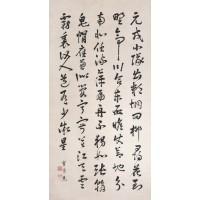 元戎小隊出郊坰問柳尋花到
野亭川合東西瞻使節地分
南北任流萍扁舟不獨如張翰
皂帽應兼似管寧寂寞江天雲
霧裏何人道有少微星